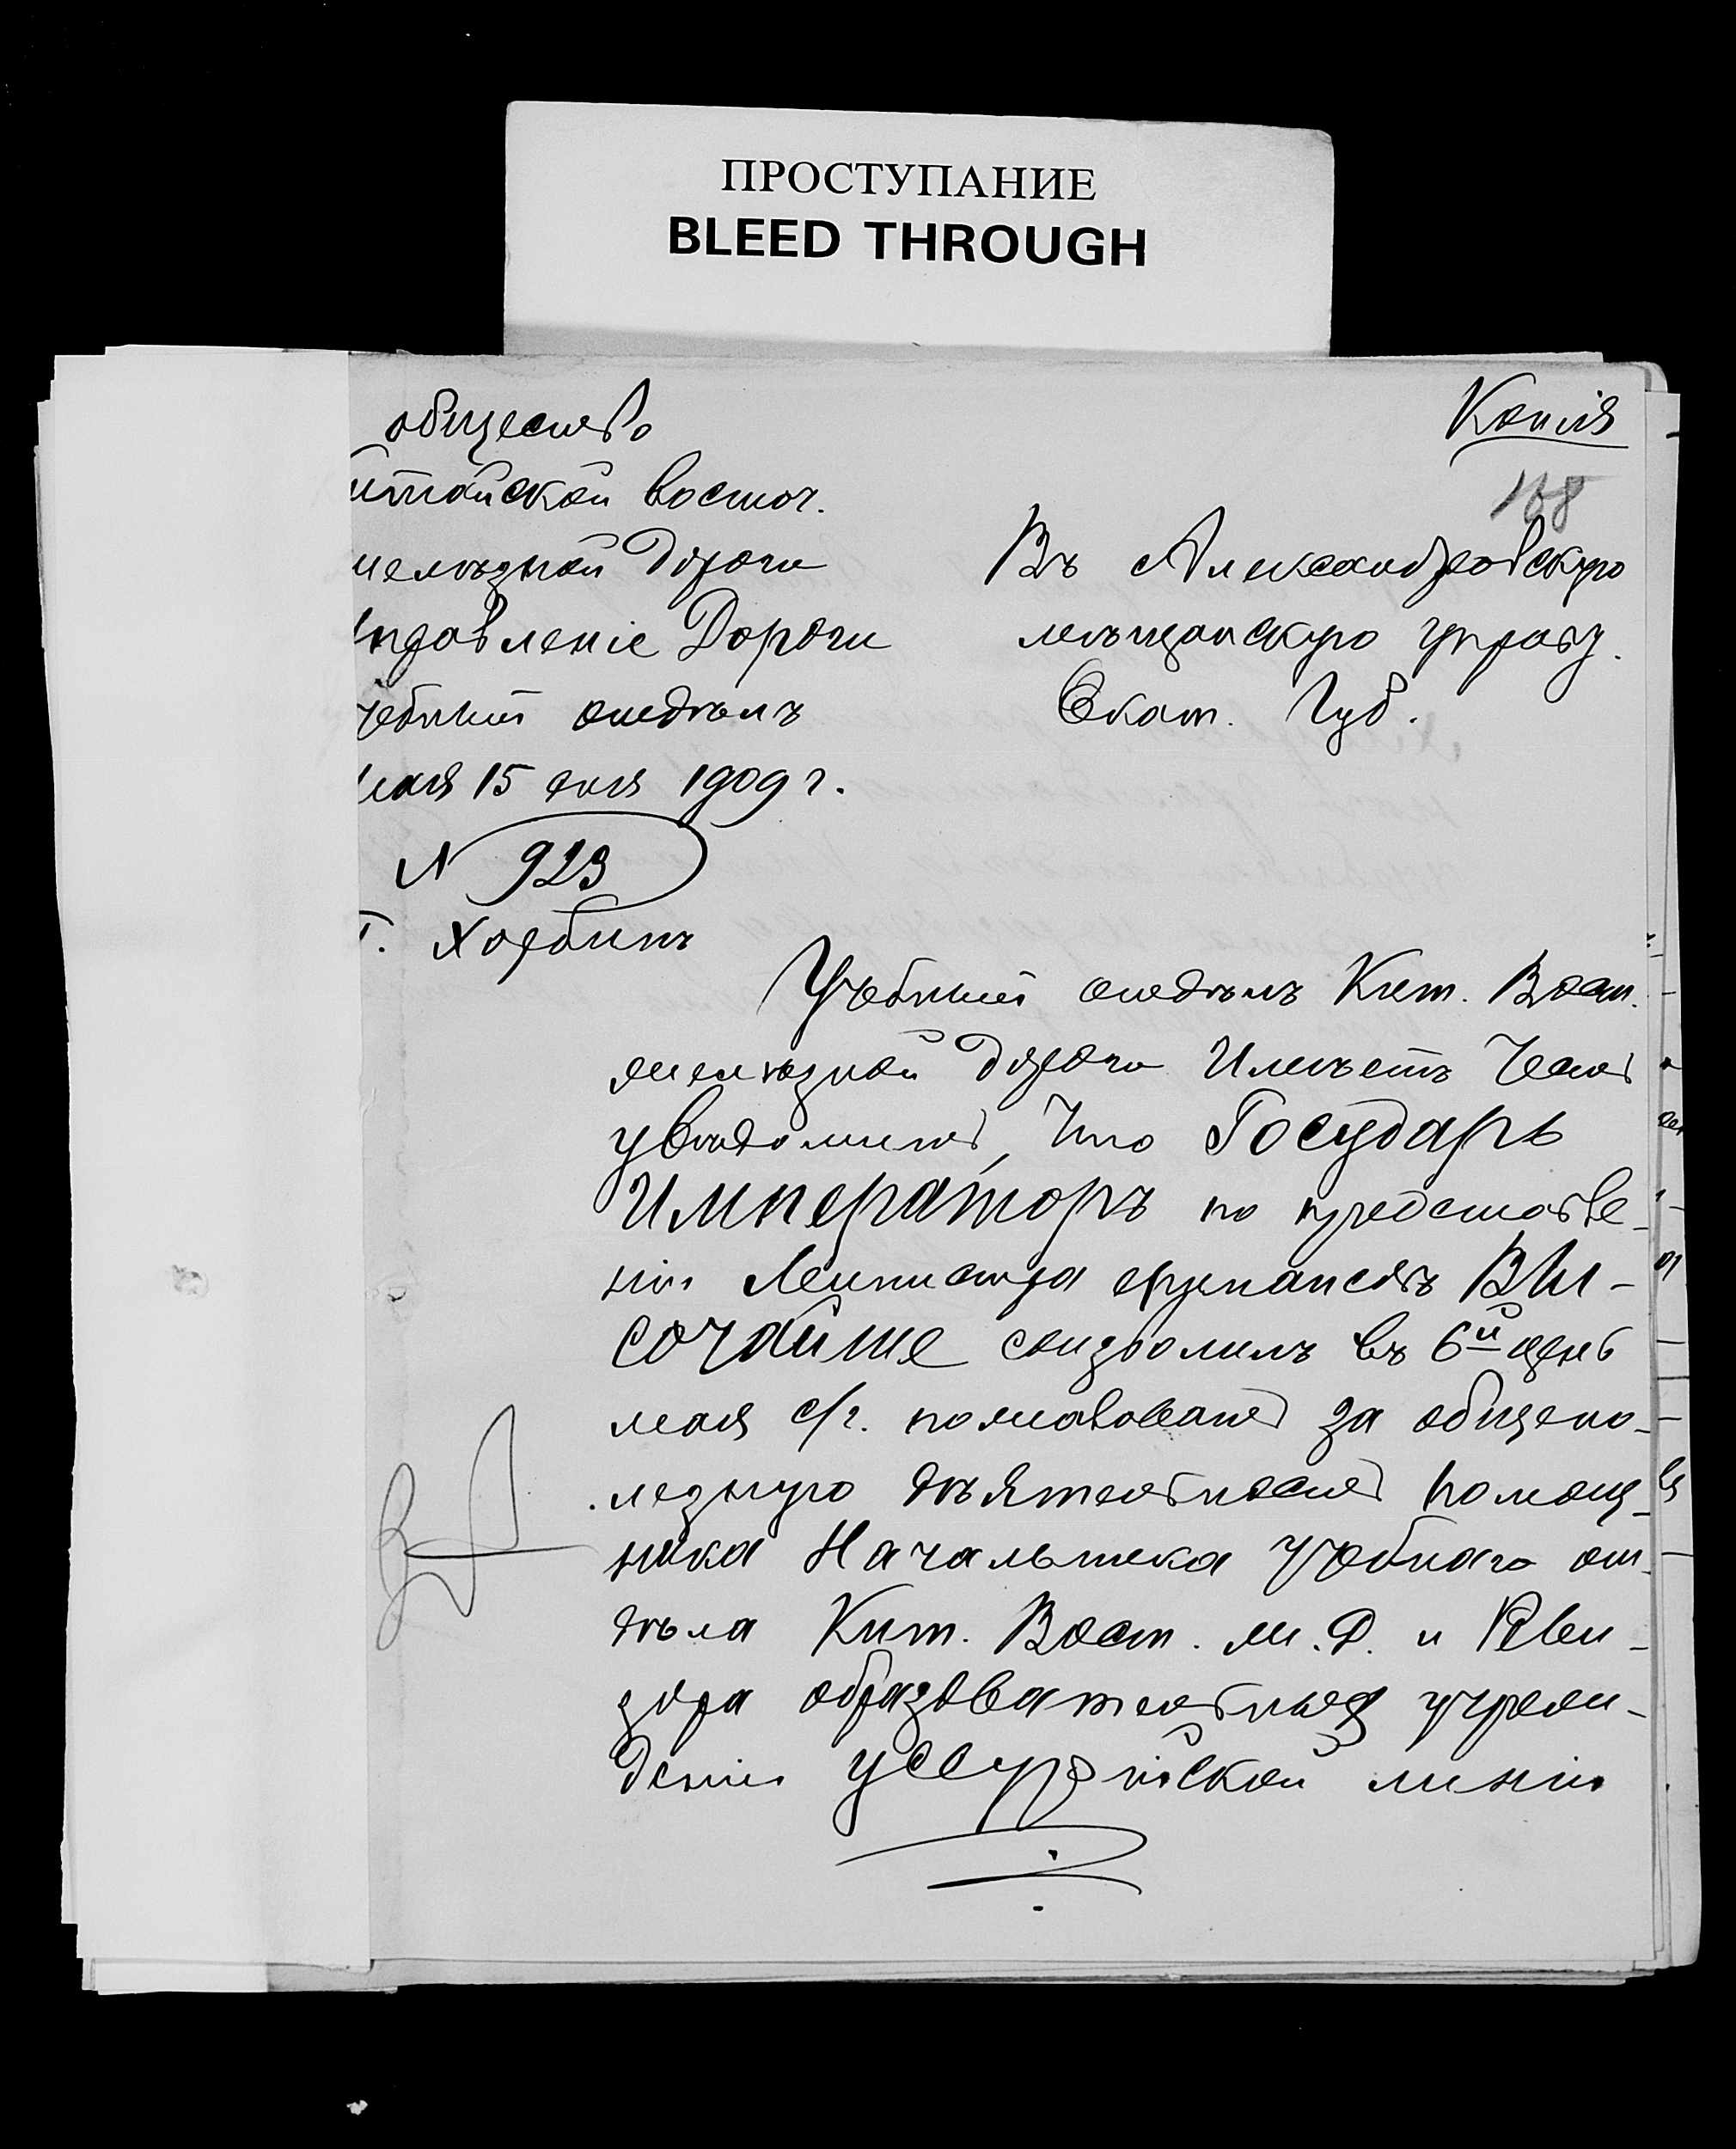 ПРОСТУПАНИЕ
BLEED THROUGH
общество
итайской восточ.
желѣзной дороги
правленіе Дороги
чебный отдѣлъ
мая 15 дня 1909 г.
N 923
г. Харбинъ
Копія
168
Въ Александровскую
мѣщанскую управу.
Екат. Губ.
Учебный отдѣлъ Кит. Вост.
желѣзной дороги имѣетъ честь
увѣдомить, что Государь
Императоръ по представле-
нію Министра финансовъ Вы-
сочайше соизволилъ въ 6й день
мая с/г. пожаловать за общепо-
лезную дѣятельность помощ-
ника Начальника учебнаго от-
дѣла Кит. Вост. ж. д. и Реви-
зора образовательныхъ учреж-
деній Уссурійской линіи